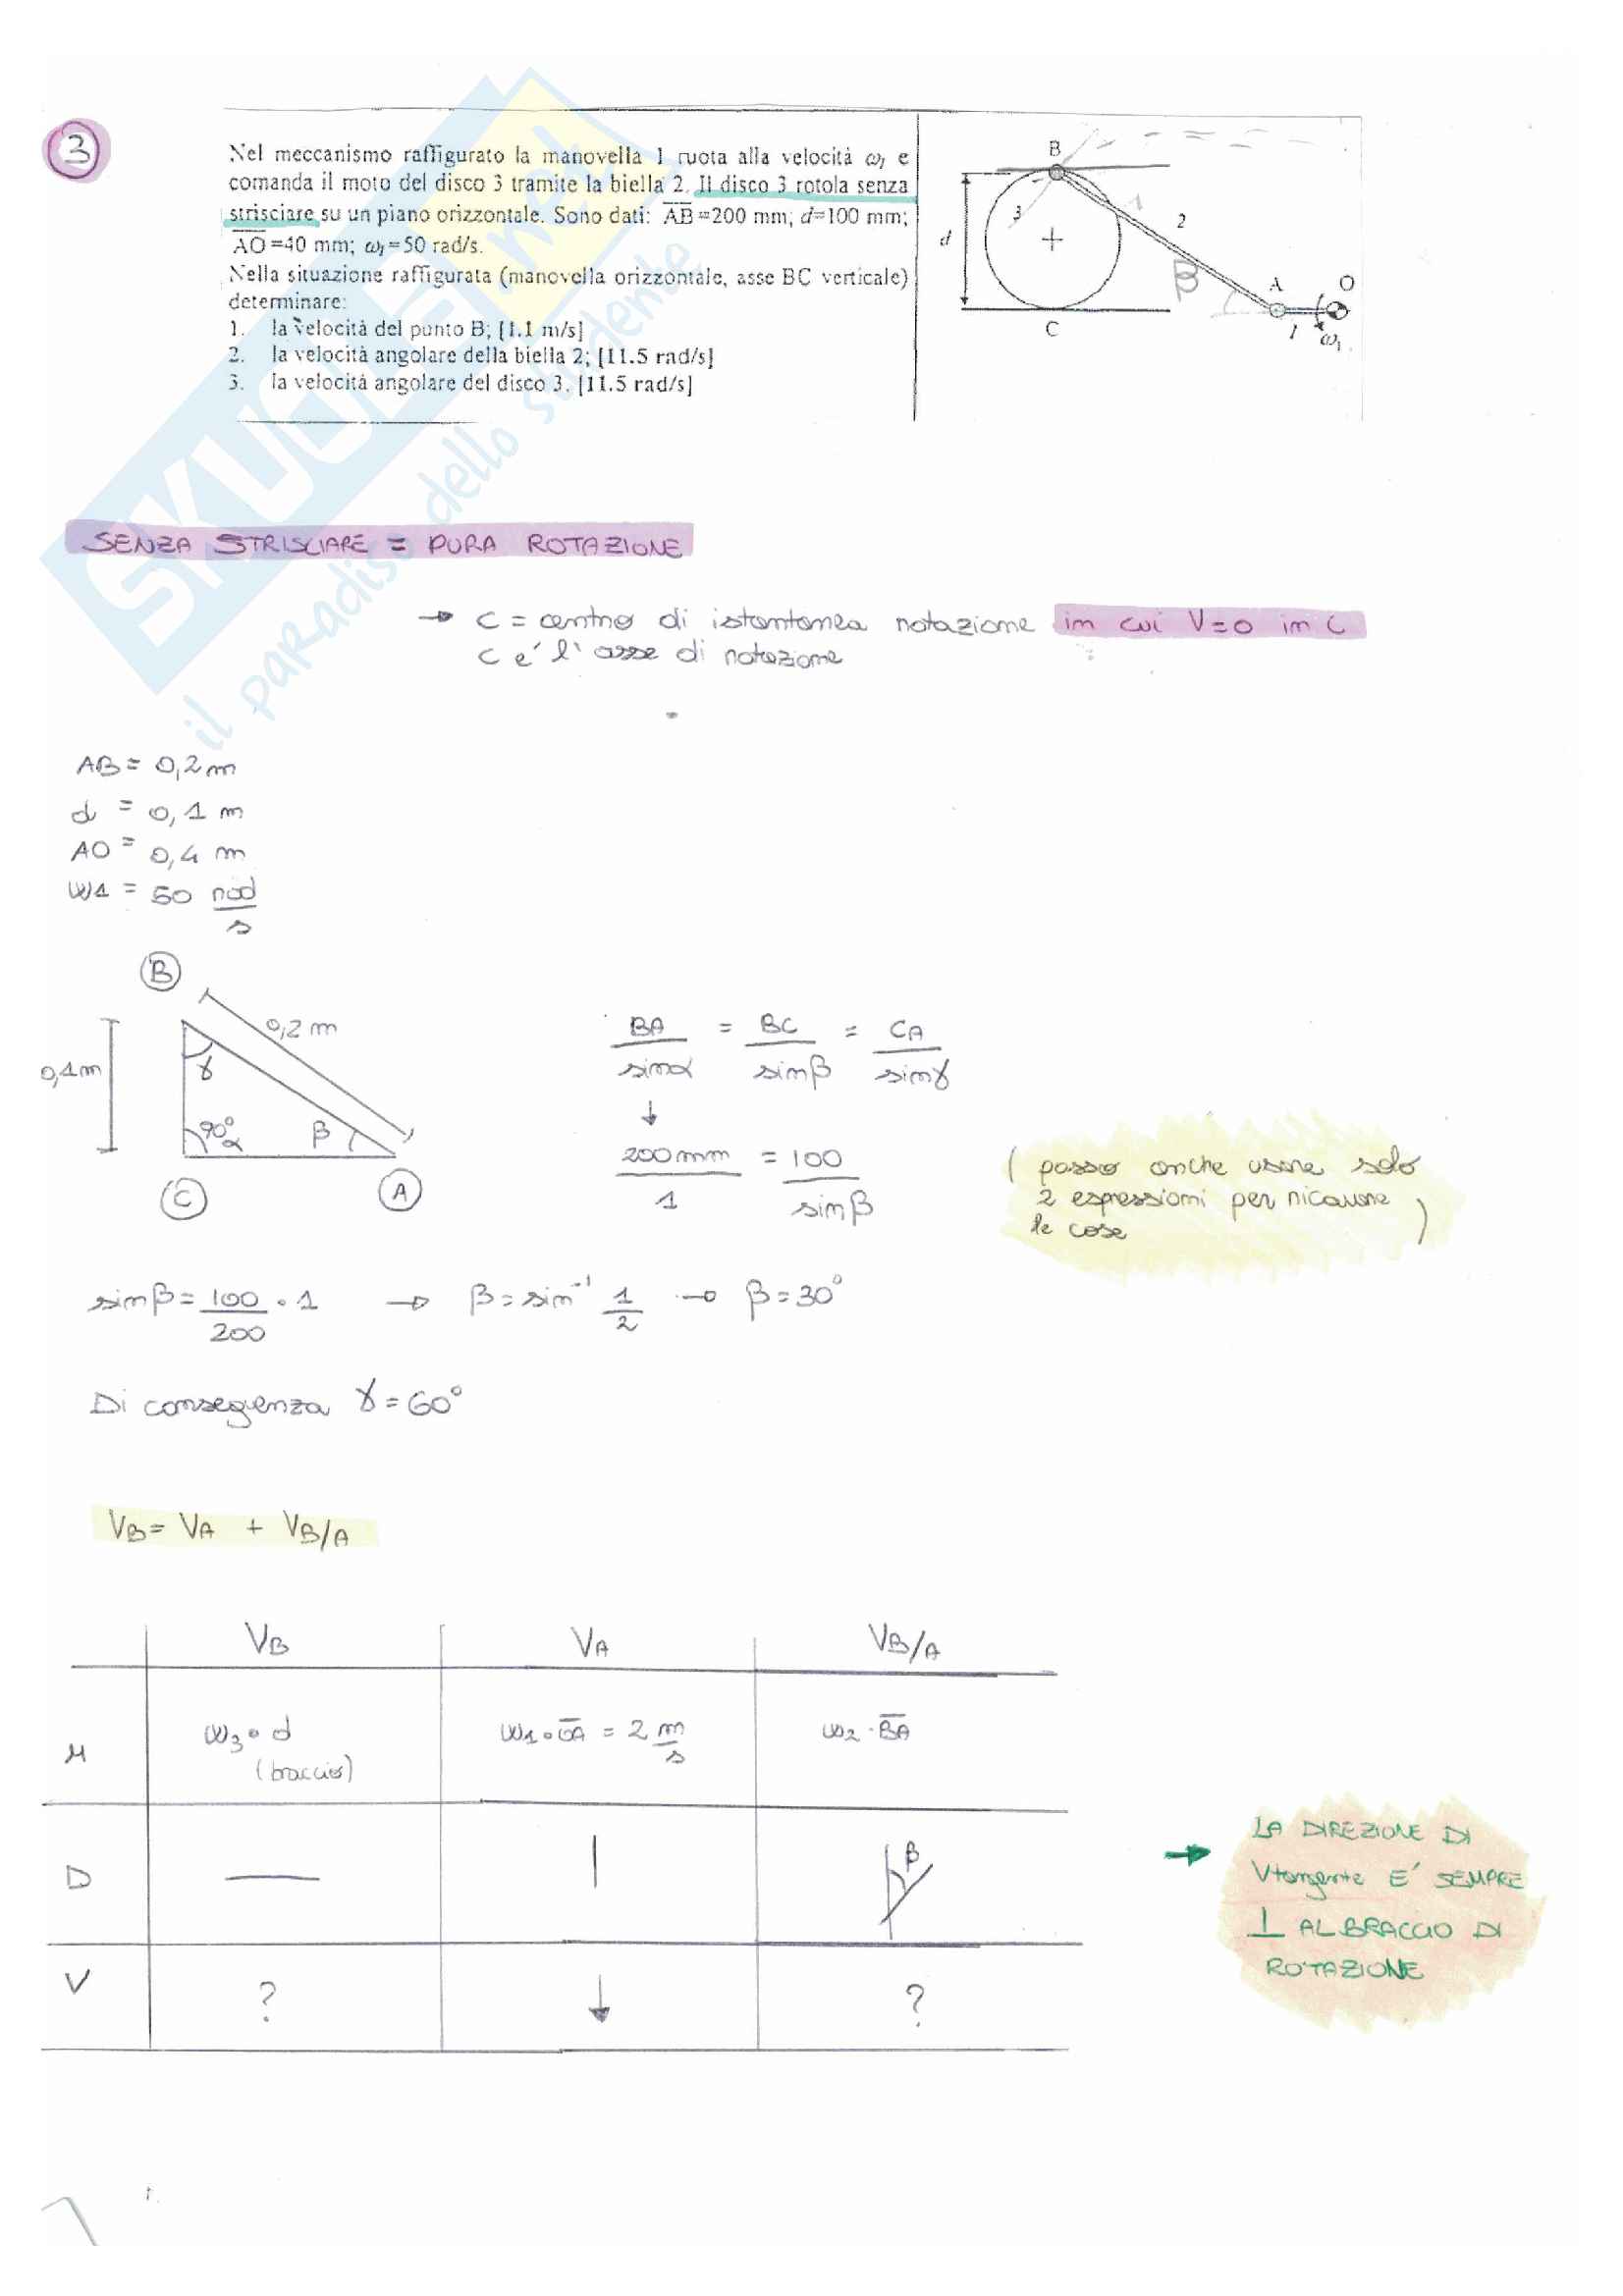 3
Nel meccanismo raffigurato la manovella 1 ruota alla velocità ω₁ e
comanda il moto del disco 3 tramite la biella 2. Il disco 3 rotola senza
strisciare su un piano orizzontale. Sono dati: AB =200 mm; d=100 mm;
AO =40 mm; ω₁=50 rad/s.
Nella situazione raffigurata (manovella orizzontale, asse BC verticale)
determinare:
1. la velocità del punto B; [1.1 m/s]
2. la velocità angolare della biella 2; [11.5 rad/s]
3. la velocità angolare del disco 3. [11.5 rad/s]
B
3
1
2
d
β
A
O
C
1
ω₁
SKUOLA.net
il paradiso dello studente
SENZA STRISCIARE = PURA ROTAZIONE
→ C = centro di istantanea rotazione in cui V=0 in C
C e' l' asse di rotazione
AB = 0,2 m
d = 0,1 m
AO = 0,4 m
W1 = 50 rad/s
B
0,2 m
0,1 m
γ
90° α
β
C
A
BA/sinα = BC/sinβ = CA/sinγ
↓
200mm/1 = 100/sinβ
( posso anche usare solo
2 espressioni per ricavare
le cose )
sinβ = 100/200 · 1 → β = sin⁻¹ 1/2 → β = 30°
Di conseguenza γ = 60°
VB = VA + VB/A
VB VA VB/A
M ω3 · d (braccio) ω1 · OA = 2 m/s ω2 · BA
D — | β
V ? ↓ ?
→ LA DIREZIONE DI
Vtangente E' SEMPRE
⊥ AL BRACCIO DI
ROTAZIONE